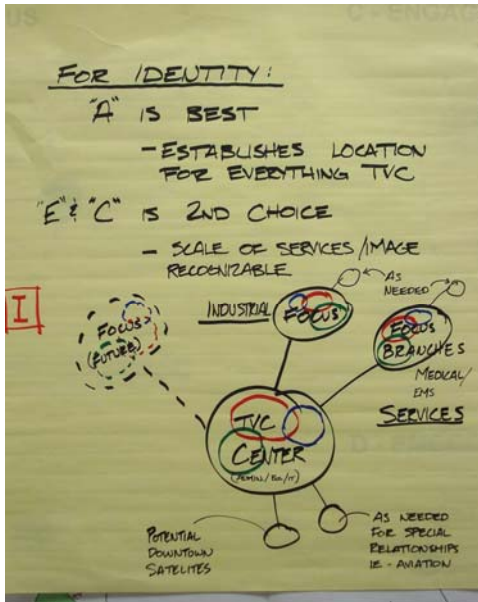 C - ENGAG
FOR IDENTITY:
"A" IS BEST
- ESTABLISHES LOCATION
FOR EVERYTHING TVC
"E" & "C" IS 2ND CHOICE
- SCALE OF SERVICES/IMAGE
RECOGNIZABLE
I
FOCUS
(FUTURE)
INDUSTRIAL
FOCUS
AS
NEEDED
FOCUS
BRANCHES
MEDICAL/
EMS
SERVICES
TVC
CENTER
POTENTIAL
DOWNTOWN
SATELITES
AS NEEDED
FOR SPECIAL
RELATIONSHIPS
IE - AVIATION